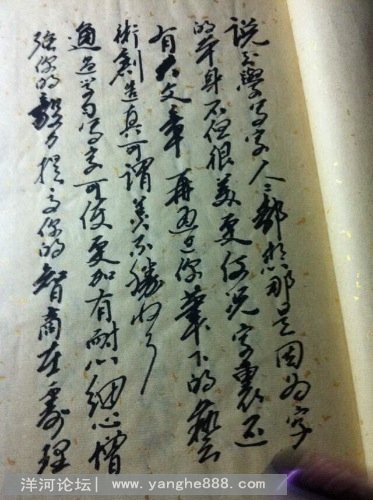 说到学写字人人都想那是因为字
的本身不但很美更何况字里还
有大文章再通过你笔下的艺
术创造真可谓美不胜收了
通过学习写字可使更加有耐心细心增
强你的毅力提高你的智商在处理
洋河论坛| www.yanghe888.com